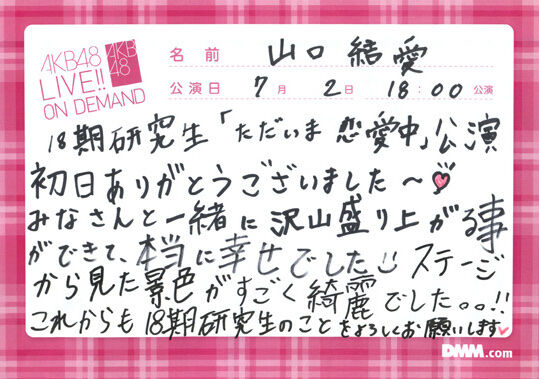 AKB48
LIVE!!
ON DEMAND
AKB
48
名前 山口 結愛
公演日 7月 2日 18:00 公演
18期研究生「ただいま 恋愛中」公演
初日ありがとうございました〜
みなさんと一緒に沢山盛り上がる事
ができて、本当に幸せでした
ステージ
から見た景色がすごく綺麗でした。。!!
これからも18期研究生のことをよろしくお願いします
DMM.com